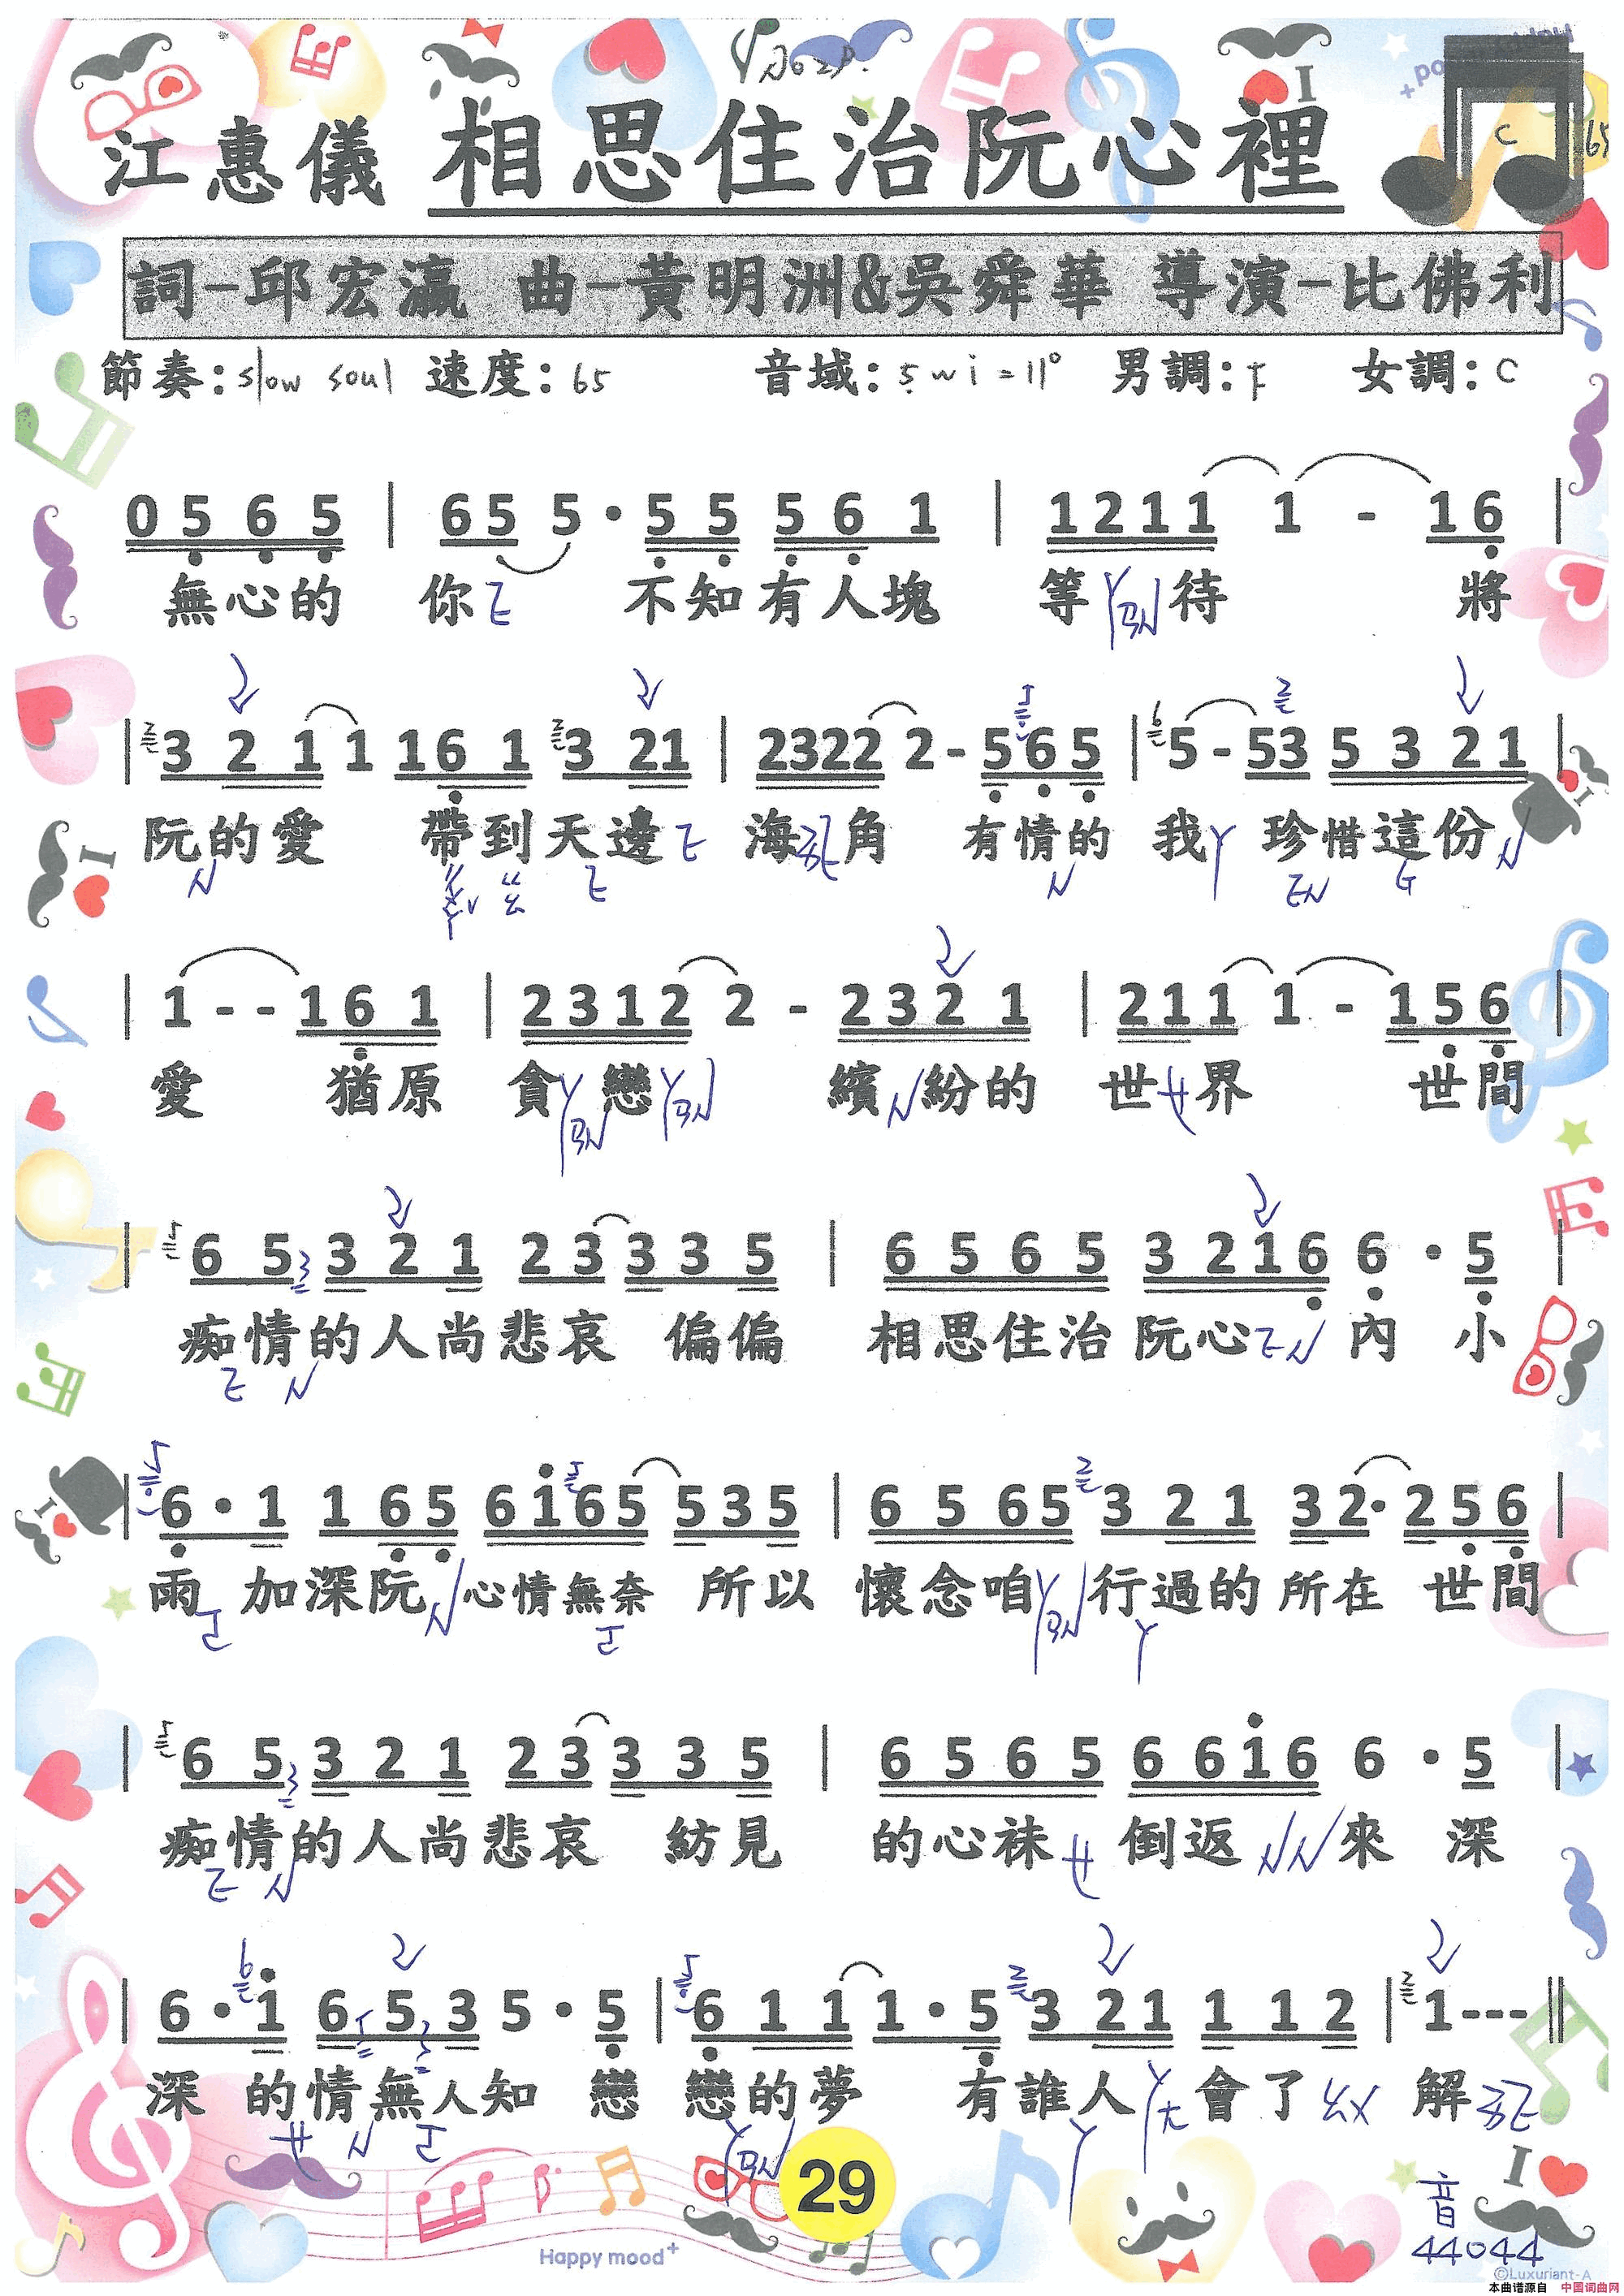 江惠儀 相思住治阮心裡
詞-邱宏瀛 曲-黃明洲&吳舜華 導演-比佛利
節奏:slow soul 速度:65 音域:5~i=11° 男調:F 女調:C
0 5 6 5 | 65 5 · 5 5 5 6 1 | 1211 1 - 16 |
無心的 你 不知有人塊 等 待 將
| 3 2 1 1 16 1 3 21 | 2322 2 - 565 | 5 - 53 5 3 2 1 |
阮的愛 帶到天邊 海 角 有情的 我 珍惜這份
| 1 - - 16 1 | 2312 2 - 232 1 | 211 1 - 156 |
愛 猶原 貪 戀 繽 紛的 世 界 世間
| 6 5 3 2 1 2 3 3 3 5 | 6 5 6 5 3 2 1 6 6 · 5 |
痴情的人尚悲哀 偏偏 相思住治 阮心 內 小
| 6 · 1 1 6 5 6 i 6 5 5 3 5 | 6 5 6 5 3 2 1 3 2 · 2 5 6 |
雨 加深阮 心情無奈 所以 懷念咱 行過的所在 世間
| 6 5 3 2 1 2 3 3 3 5 | 6 5 6 5 6 6 i 6 6 · 5 |
痴情的人尚悲哀 紡見 的心袜 倒返 來 深
| 6 · i 6 5 3 5 · 5 | 6 1 1 1 · 5 3 2 1 1 1 2 | 1 - - - ||
深 的情無人知 戀 戀的夢 有誰人 會了 解
29
音
44044
I
Happy mood+
©Luxuriant-A
本曲谱源自 中国词曲网